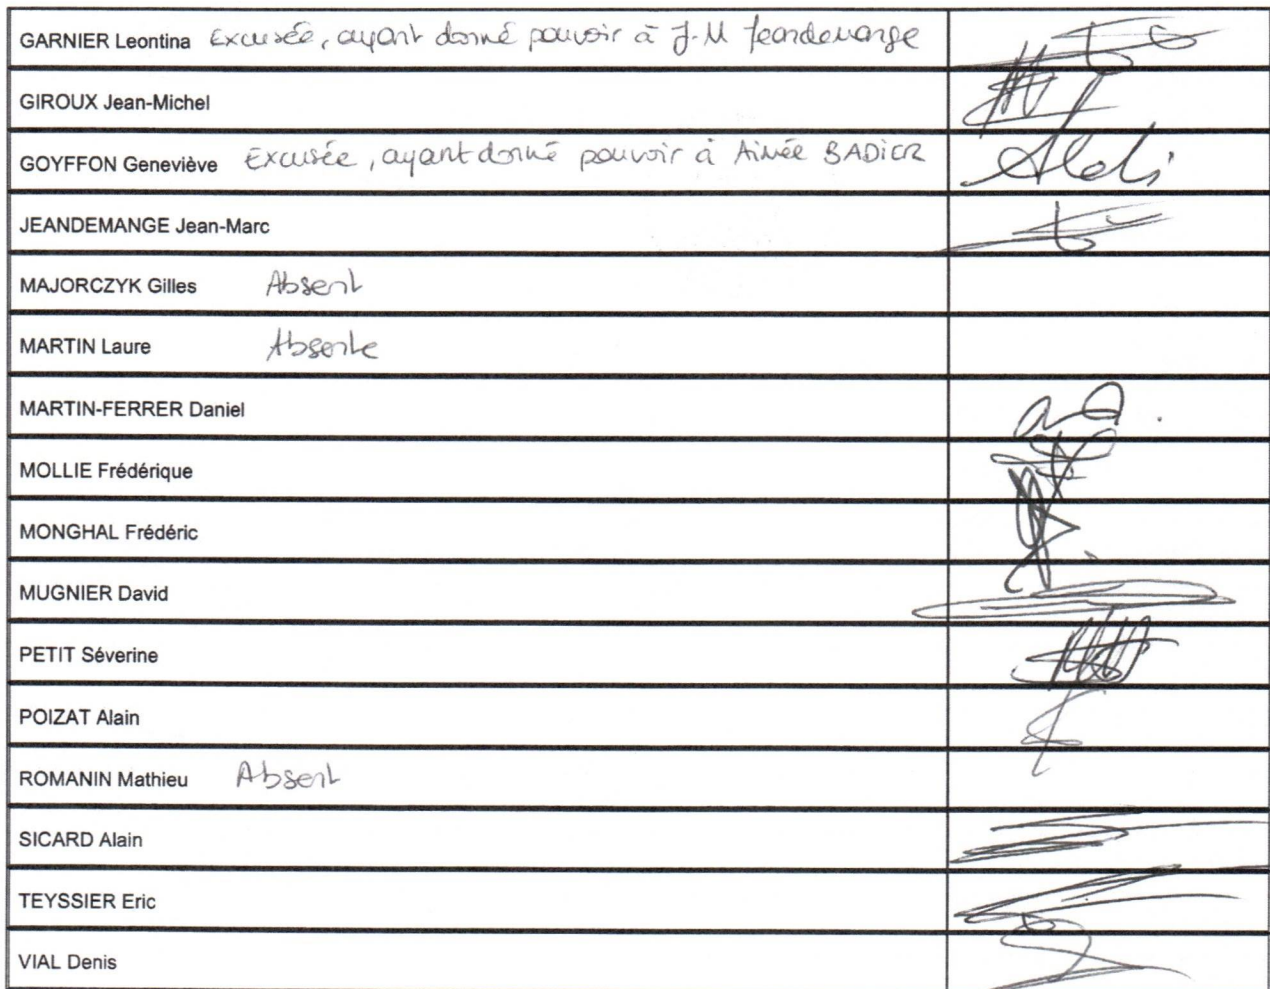 GARNIER Leontina Excusée, ayant donné pouvoir à J-M Jeandemange
GIROUX Jean-Michel
GOYFFON Geneviève Excusée, ayant donné pouvoir à Aimée BADIER
JEANDEMANGE Jean-Marc
MAJORCZYK Gilles Absent
MARTIN Laure Absente
MARTIN-FERRER Daniel
MOLLIE Frédérique
MONGHAL Frédéric
MUGNIER David
PETIT Séverine
POIZAT Alain
ROMANIN Mathieu Absent
SICARD Alain
TEYSSIER Eric
VIAL Denis